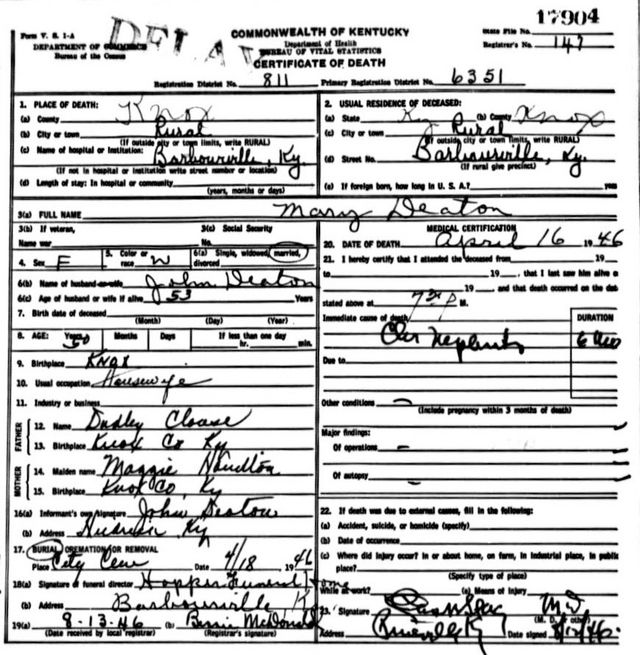 17904
Form V. S. 1-A
DEPARTMENT OF COMMERCE
Bureau of the Census
DELAY
COMMONWEALTH OF KENTUCKY
Department of Health
BUREAU OF VITAL STATISTICS
CERTIFICATE OF DEATH
State File No.
Registrar's No. 147
Registration District No. 811 Primary Registration District No. 6351
1. PLACE OF DEATH:
(a) County Knox
(b) City or town Rural
(If outside city or town limits, write RURAL)
(c) Name of hospital or institution: Barbourville, Ky.
(If not in hospital or institution write street number or location)
(d) Length of stay: In hospital or community
(years, months or days)
2. USUAL RESIDENCE OF DECEASED:
(a) State Ky (b) County Knox
(c) City or town Rural
(If outside city or town limits, write RURAL)
(d) Street No. Barbourville, Ky.
(If rural give precinct)
(e) If foreign born, how long in U. S. A.? years
3(a) FULL NAME Mary Deaton
3(b) If veteran, Name war
3(c) Social Security No.
4. Sex F 5. Color or race W 6(a) Single, widowed, married, divorced
6(b) Name of husband or wife John Deaton
6(c) Age of husband or wife if alive 53 Years
7. Birth date of deceased
(Month) (Day) (Year)
8. AGE: Years 50 Months Days If less than one day hr. min.
9. Birthplace Knox
10. Usual occupation Housewife
11. Industry or business
FATHER
12. Name Dudley
13. Birthplace Knox Co Ky
MOTHER
14. Maiden name Maggie
15. Birthplace Knox Co, Ky
16(a) Informant's own Signature John Deaton
(b) Address Ky
17. BURIAL, CREMATION OR REMOVAL
Place City Cem Date 4/18 1946
18(a) Signature of funeral director Hopper Funeral Home
(b) Address Barbourville Ky
19(a) 8-13-46 (b) McDonald
(Date received by local registrar) (Registrar's signature)
MEDICAL CERTIFICATION
20. DATE OF DEATH April 16 1946
21. I hereby certify that I attended the deceased from 19
to 19, that I last saw him alive on
19, and that death occurred on the date
stated above at 7 P M.
Immediate cause of death
DURATION
Due to
Other conditions -
(Include pregnancy within 3 months of death)
Major findings:
Of operations -
Of autopsy -
22. If death was due to external causes, fill in the following:
(a) Accident, suicide, or homicide (specify)
(b) Date of occurrence
(c) Where did injury occur? In or about home, on farm, in industrial place, in public
place?
(Specify type of place)
While at work? (e) Means of Injury
23. Signature M.D.
(M. D. or other)
Address Pineville Ky Date signed